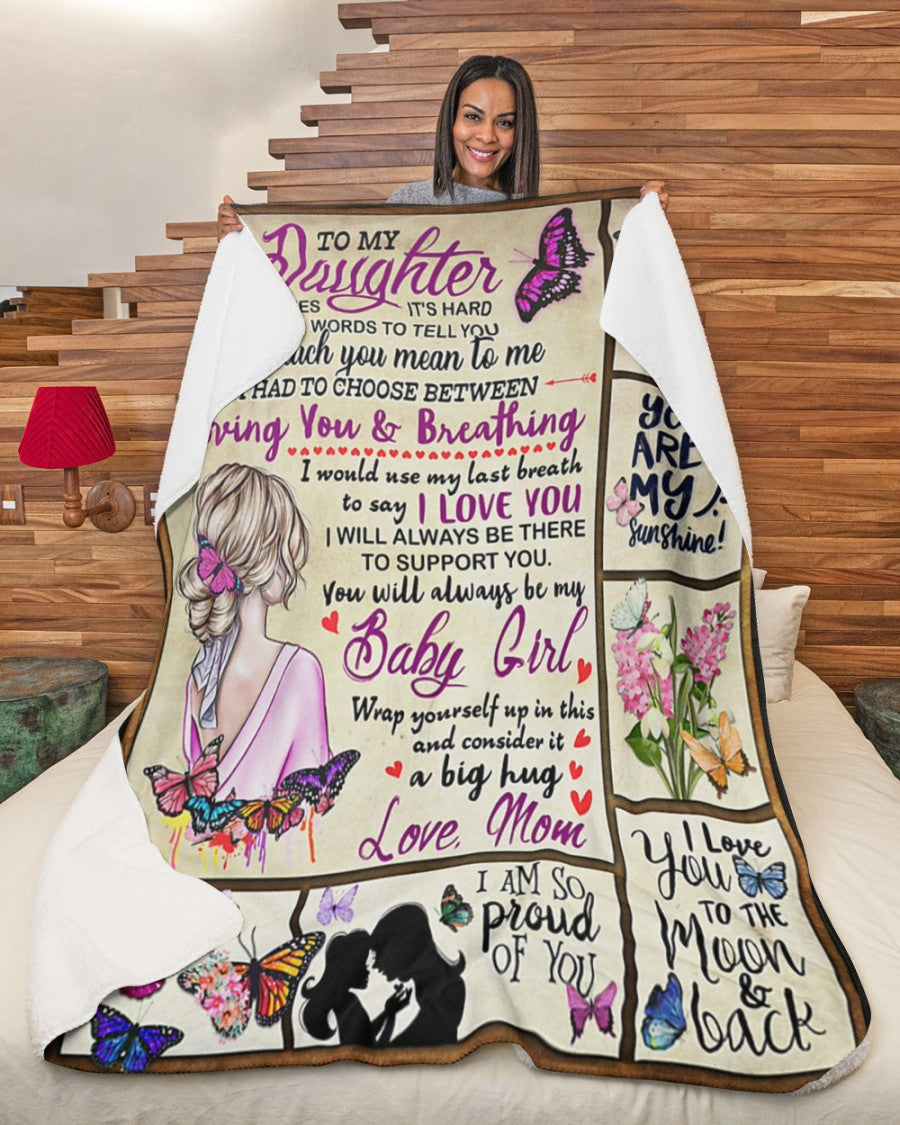 TO MY
Daughter
IT'S HARD
WORDS TO TELL YOU
you mean to me
HAD TO CHOOSE BETWEEN
You & Breathing
I would use my last breath
to say I LOVE YOU
I WILL ALWAYS BE THERE
TO SUPPORT YOU.
You will always be my
Baby Girl
Wrap yourself up in this
and consider it
a big hug
Love, Mom
ARE
MY
sunshine!
I Love
You
TO THE
Moon
&
back
I AM SO
proud
OF YOU